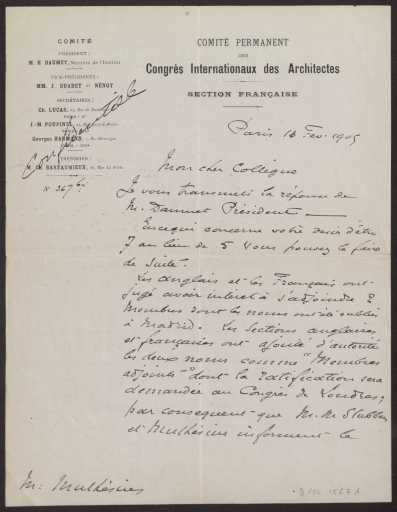 COMITÉ
PRÉSIDENT :
M. H. DAUMET, Membre de l'Institut
VICE-PRÉSIDENTS :
MM. J. GUADET et NÉNOT
SECRÉTAIRES :
CH. LUCAS,
J.-M. POUPINEL,
GEORGES HARMAND,
TRÉSORIER :
M. CH. BARTAUMIEUX,
N° 367
COMITÉ PERMANENT
DES
Congrès Internationaux des Architectes
SECTION FRANÇAISE
Paris 16 Fev. 1905
Mon cher Collègue
Je vous transmets la réponse de
M. Daumet Président —
En ce qui concerne votre desir d'être
7 au lieu de 5 vous pouvez le faire
de suite.
Les Anglais et les Français ont
jugé avoir interet à s'adjoindre 2
Membres dont les noms ont été oubliés
à Madrid. Les Sections anglaises
et françaises ont ajouté d'autorité
les deux noms comme "Membres
adjoints" dont la ratification sera
demandée au Congrès de Londres,
par consequent que M. M. Stubben
et Muthésius informent le
M. Muthésius